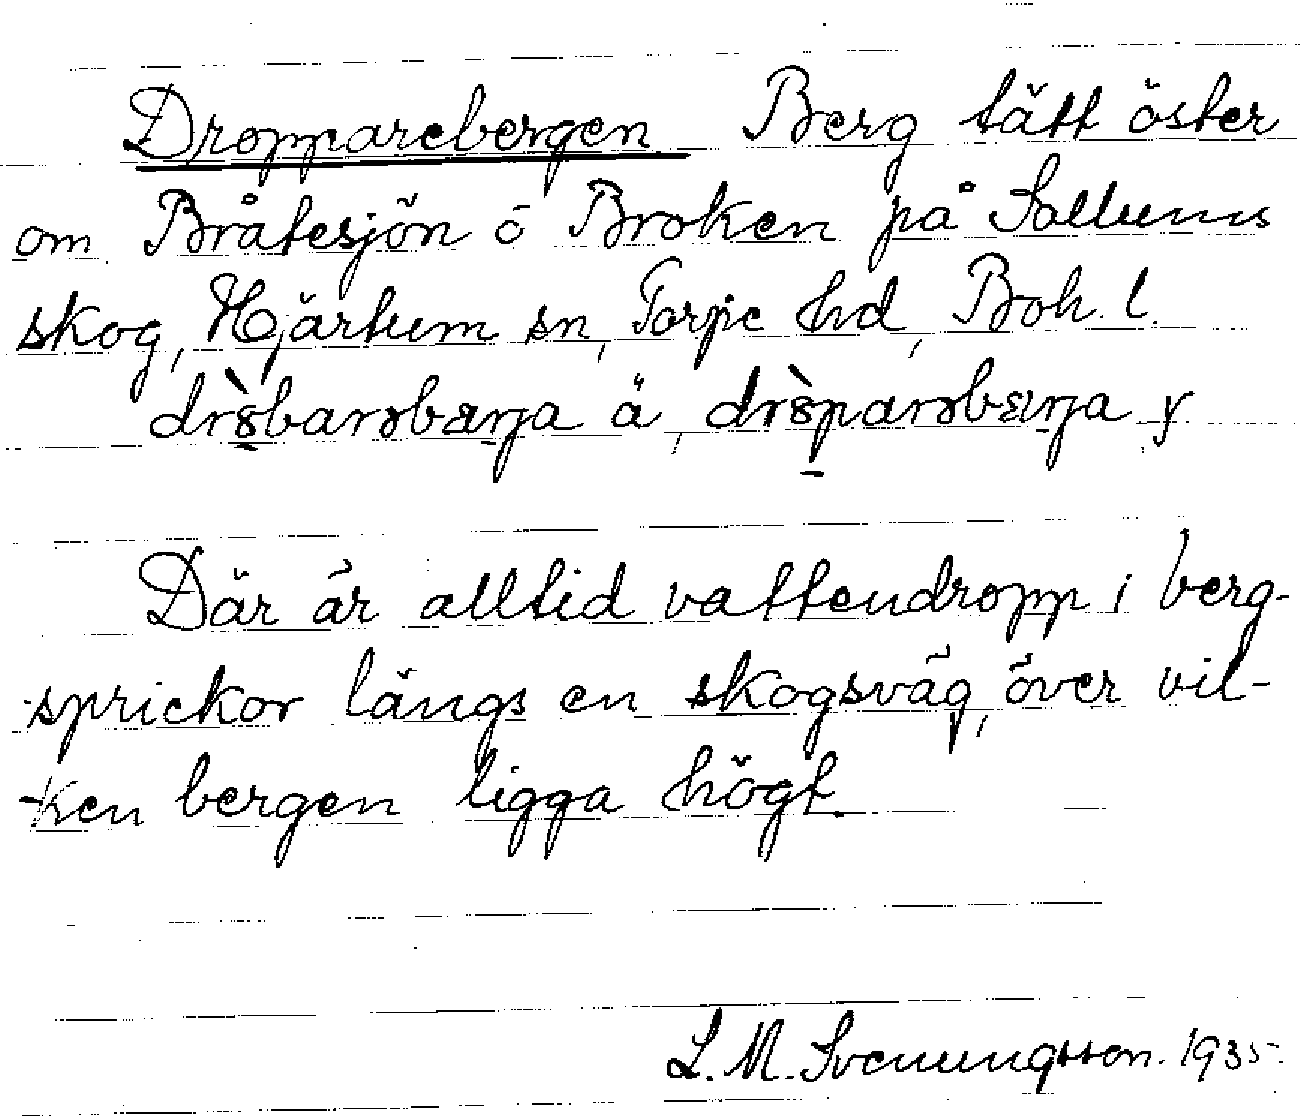 Dropparebergen Berg tätt öster
om Bråtesjön o Broken på Sollums
skog, Hjärtum sn, Torpe hd, Boh. l.
dròbarəbæŋa ä, dròparəbæŋa y
Där är alltid vattendropp i berg-
sprickor längs en skogsväg, över vil-
ken bergen ligga högt.
L. M. Svenungsson. 1935.